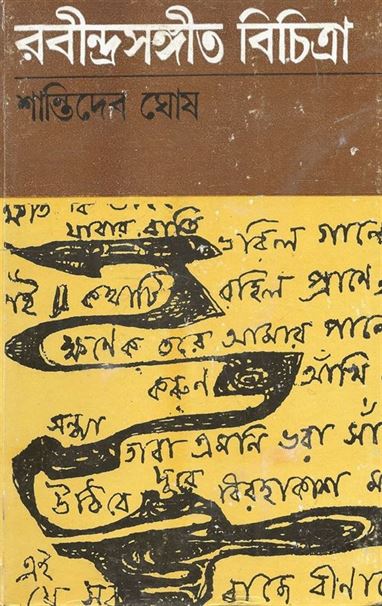 রবীন্দ্রসঙ্গীত বিচিত্রা
শান্তিদেব ঘোষ
যাবার রাতি
ভরিল গানে
এই কথাটি রহিল প্রাণে
ক্ষণেক তরে আমার পানে
করুণ আঁখি
সন্ধ্যা
তারা এমনি ভরা সাঁ
উঠিবে দূরে বিরহাকাশ ম
এই
যে বাজে বীণা